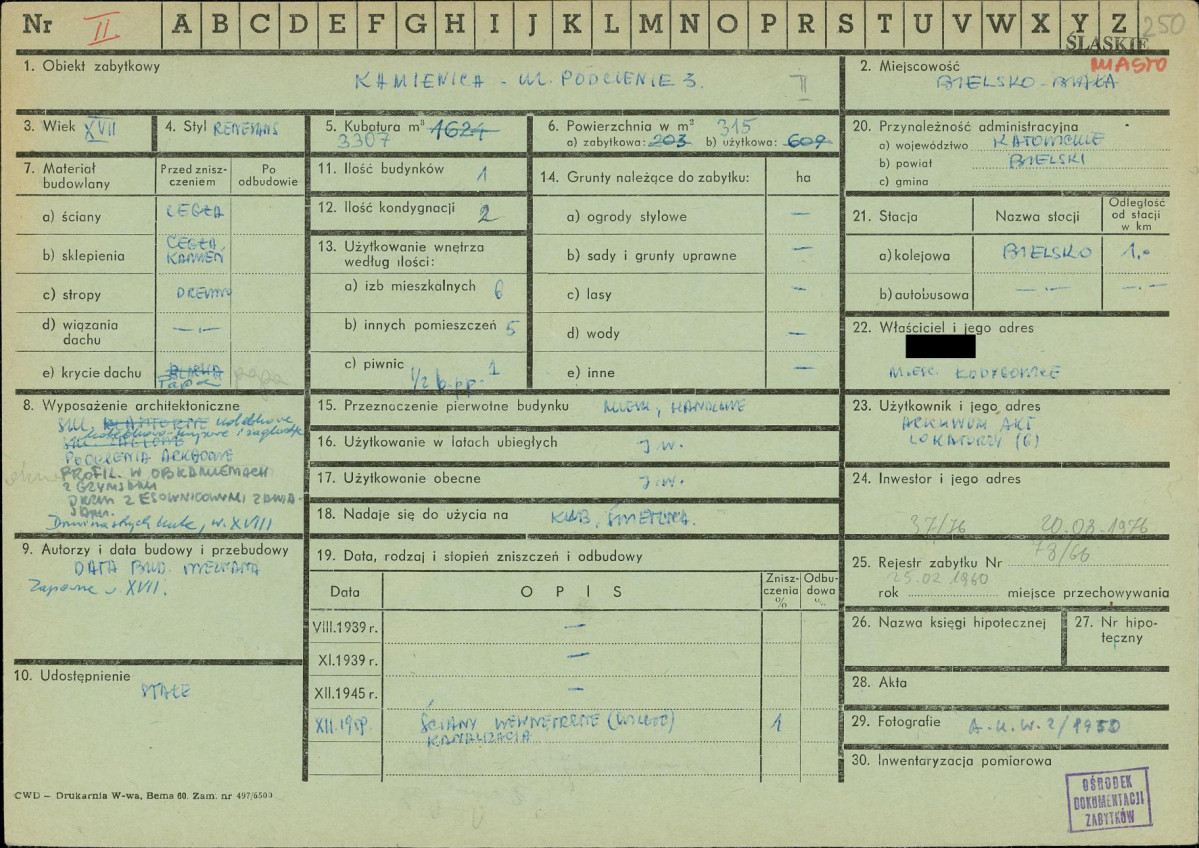 Nr II A B C D E F G H I J K L M N O P R S T U V W X Y Z 250
ŚLĄSKIE
1. Obiekt zabytkowy
KAMIENICA - UL. PODCIENIE 3. II
2. Miejscowość MIASTO
BIELSKO-BIAŁA
3. Wiek XVII
4. Styl RENESANS
5. Kubatura m³ 1624
3307
6. Powierzchnia w m² 315
a) zabytkowa: 203 b) użytkowa: 609
20. Przynależność administracyjna
a) województwo KATOWICKIE
b) powiat BIELSKI
c) gmina
7. Materiał budowlany
Przed zniszczeniem
Po odbudowie
a) ściany CEGŁA
b) sklepienia CEGŁA, KAMIEŃ
c) stropy DREWN
d) wiązania dachu -.-
e) krycie dachu BLACHA
Papa papa
11. Ilość budynków 1
12. Ilość kondygnacji 2
13. Użytkowanie wnętrza
według ilości:
a) izb mieszkalnych 6
b) innych pomieszczeń 5
c) piwnic 1
14. Grunty należące do zabytku: ha
a) ogrody stylowe —
b) sady i grunty uprawne —
c) lasy —
d) wody —
e) inne —
21. Stacja
Nazwa stacji
Odległość od stacji w km
a) kolejowa BIELSKO 1,0
b) autobusowa -.- -.-
22. Właściciel i jego adres
8. Wyposażenie architektoniczne
PODCIENIA ARKADOWE
PROFIL. W OBRAMIENIACH
Z GZYMSAMI
DRZWI Z ESOWNICOWYMI ZAWIA-
SAMI.
w. XVIII
15. Przeznaczenie pierwotne budynku MIESZK, HANDLOWE
16. Użytkowanie w latach ubiegłych j.w.
17. Użytkowanie obecne j.w.
18. Nadaje się do użycia na KLUB, ŚWIETLICA.
23. Użytkownik i jego adres
ARCHIWUM AKT
LOKATORZY (6)
24. Inwestor i jego adres
37/76 20.03.1976
9. Autorzy i data budowy i przebudowy
DATA BUD. NIEZNANA
Zapewne w XVII.
10. Udostępnienie
STAŁE
19. Data, rodzaj i stopień zniszczeń i odbudowy
Data
O P I S
Zniszczenia %
Odbudowa %
VIII.1939 r. —
XI.1939 r. —
XII.1945 r. —
XII.1959. ŚCIANY WEWNĘTRZNE (WILGOĆ) 1
KANALIZACJA
25. Rejestr zabytku Nr 78/60
25.02.1960
rok miejsce przechowywania
26. Nazwa księgi hipotecznej
27. Nr hipoteczny
28. Akta
29. Fotografie
30. Inwentaryzacja pomiarowa
OŚRODEK
DOKUMENTACJI
ZABYTKÓW
CWD — Drukarnia W-wa, Bema 60. Zam. nr 497/6500